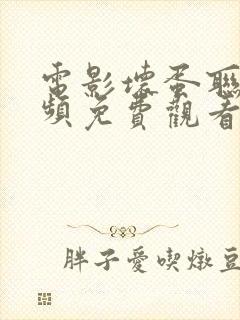 電影壞蛋聯
頻免費觀看
胖子愛喫燉豆